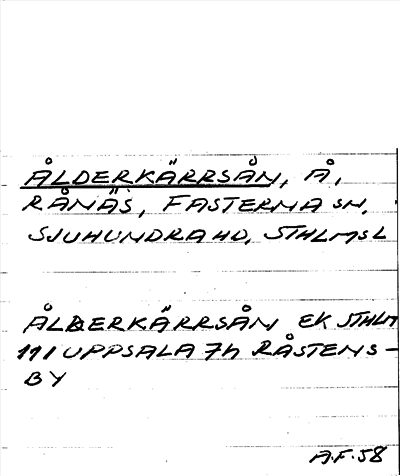 ÅLDERKÄRRSÅN, Å,
RÅNÄS, FASTERNA SN,
SJUHUNDRA HD, STHLMS L
ÅLDERKÄRRSÅN EK STHLM
111 UPPSALA 7h RÅSTENS-
BY
A.F. 58